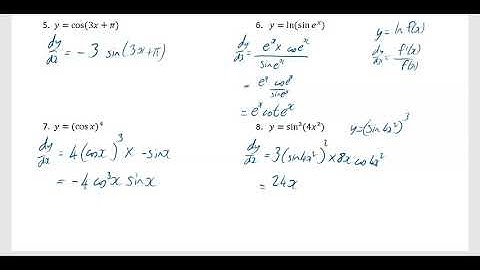 5. y = cos(3x + π)
dy/dx = -3 sin(3x+π)
6. y = ln(sin eˣ)
y = ln f(x)
dy/dx = f'(x)/f(x)
dy/dx = eˣ × cos eˣ / sin eˣ
= eˣ cos eˣ / sin eˣ
= eˣ cot eˣ
7. y = (cos x)⁴
dy/dx = 4(cos x)³ × -sin x
= -4 cos³x sin x
8. y = sin³(4x²)
y = (sin 4x²)³
dy/dx = 3(sin 4x²)² × 8x cos 4x²
= 24x